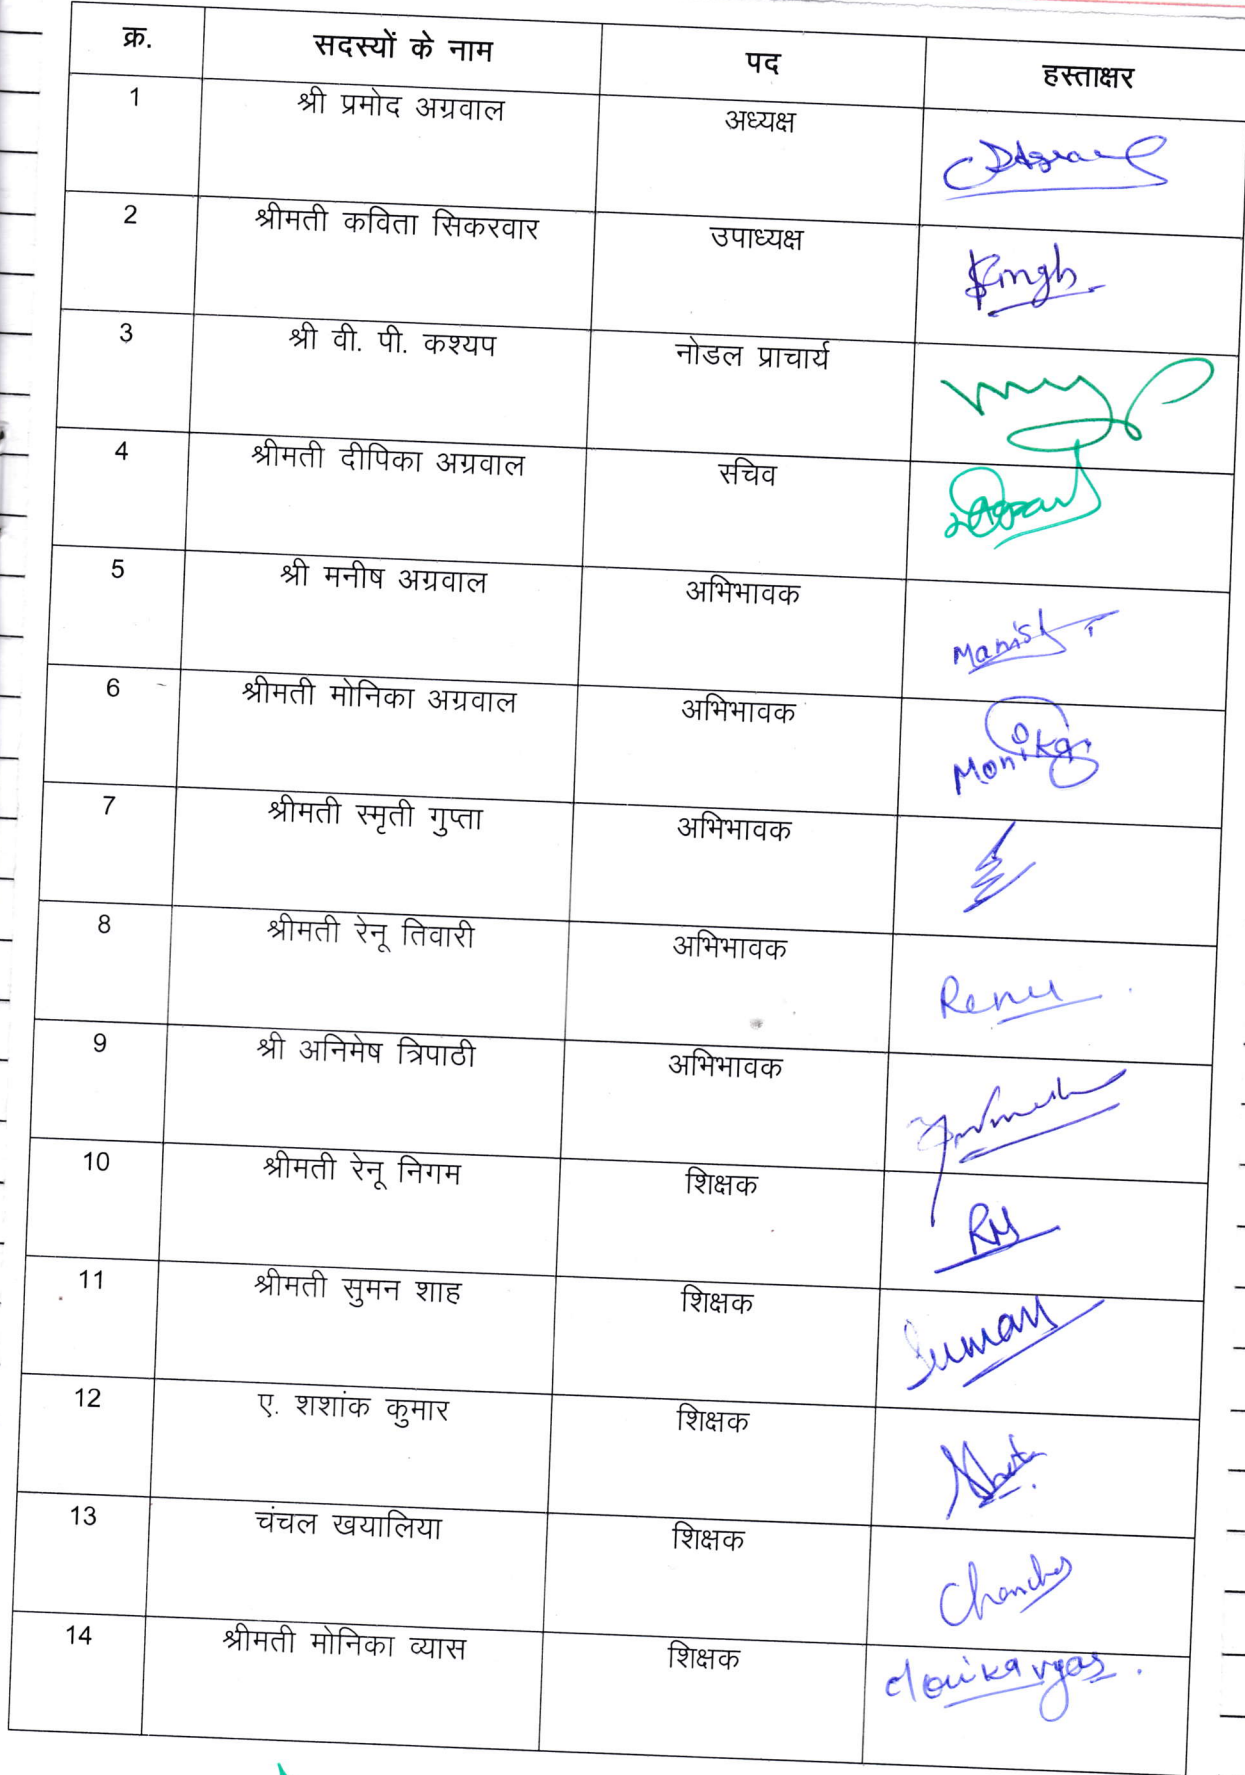 क्र. सदस्यों के नाम पद हस्ताक्षर
1 श्री प्रमोद अग्रवाल अध्यक्ष
2 श्रीमती कविता सिकरवार उपाध्यक्ष Singh
3 श्री वी. पी. कश्यप नोडल प्राचार्य
4 श्रीमती दीपिका अग्रवाल सचिव
5 श्री मनीष अग्रवाल अभिभावक Manish
6 श्रीमती मोनिका अग्रवाल अभिभावक Monika
7 श्रीमती स्मृती गुप्ता अभिभावक
8 श्रीमती रेनू तिवारी अभिभावक Renu
9 श्री अनिमेष त्रिपाठी अभिभावक
10 श्रीमती रेनू निगम शिक्षक
11 श्रीमती सुमन शाह शिक्षक Suman
12 ए. शशांक कुमार शिक्षक
13 चंचल खयालिया शिक्षक
14 श्रीमती मोनिका व्यास शिक्षक Monika vyas.